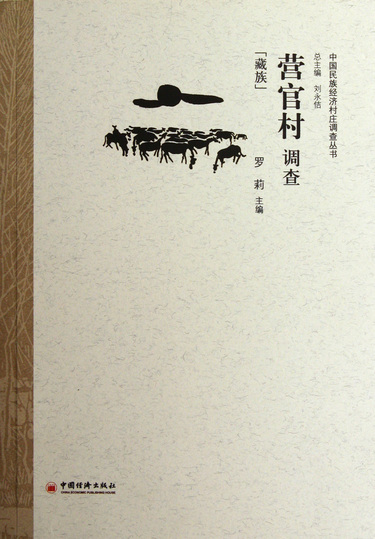 中国民族经济村庄调查丛书
总主编 刘永佶
营官村 调查
「藏族」
罗莉 主编
中国经济出版社
CHINA ECONOMIC PUBLISHING HOUSE